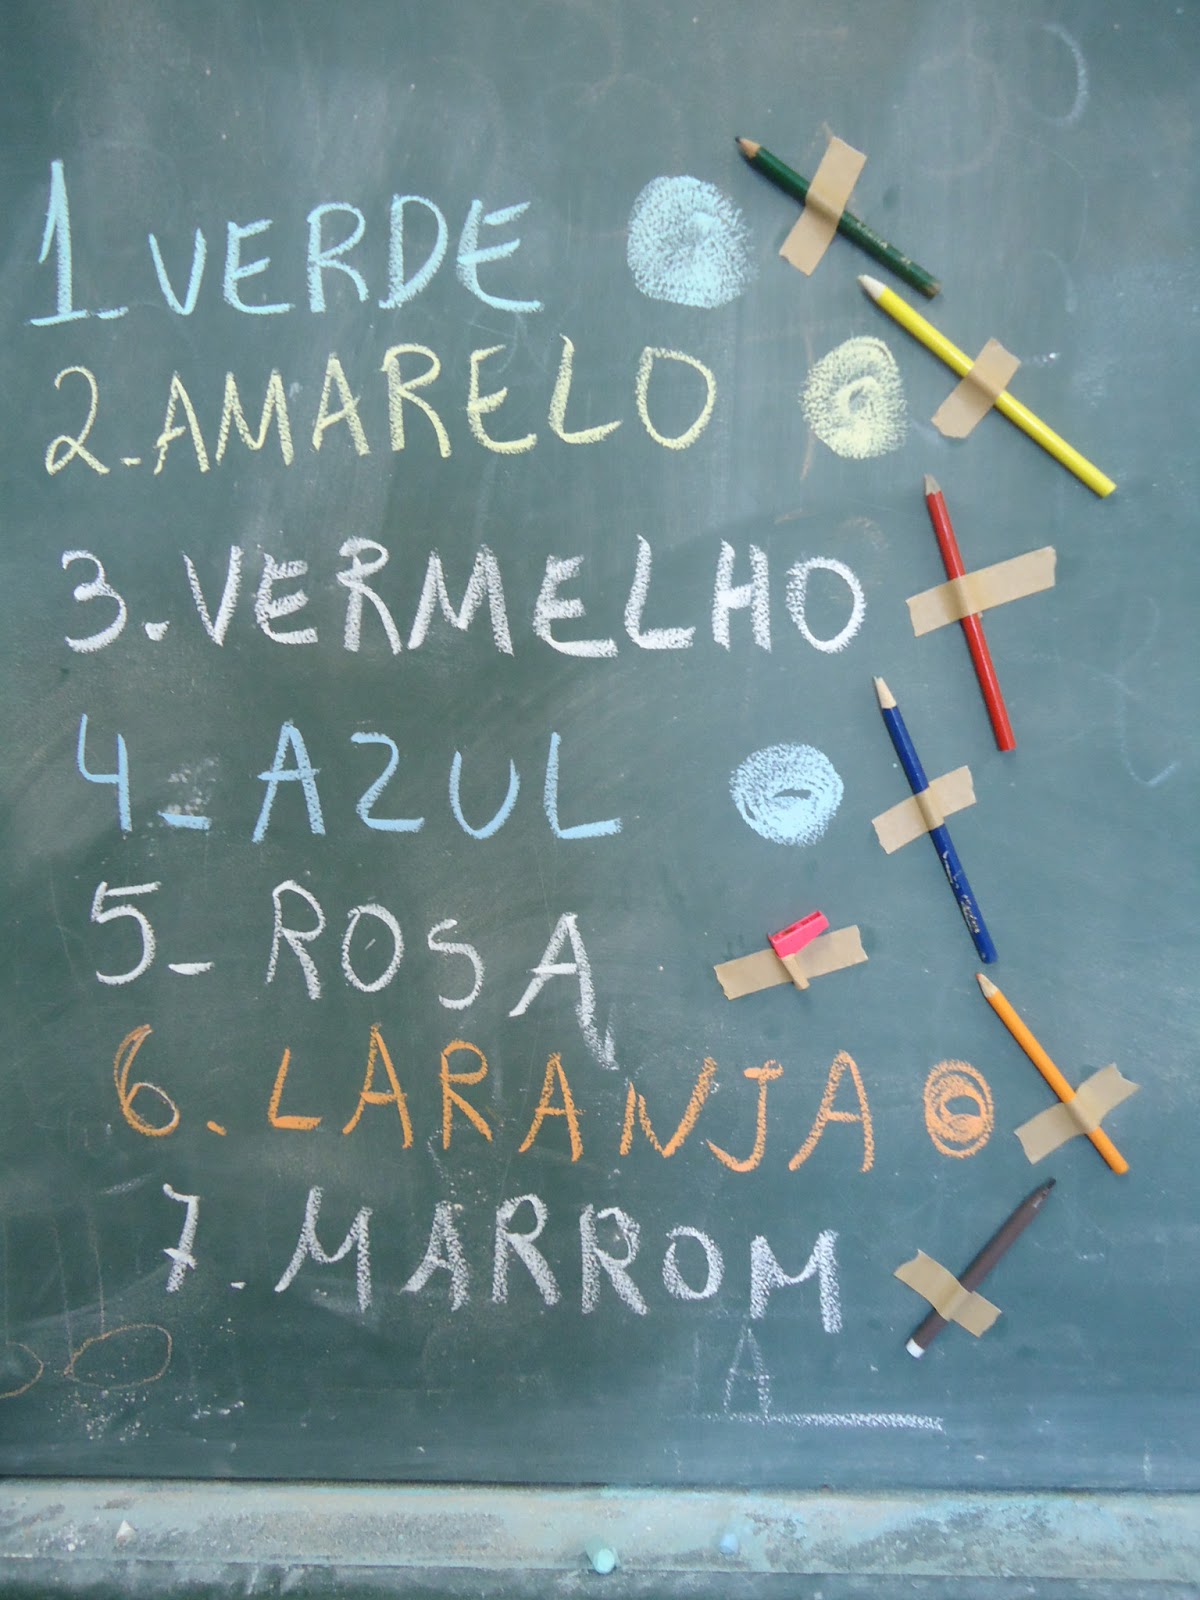 1_VERDE
2.AMARELO
3.VERMELHO
4_AZUL
5_ROSA
6.LARANJA
7.MARROM
A